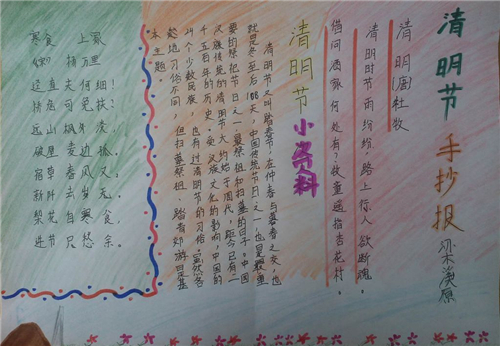 清明节手抄报
清明 杜牧
清明时节雨纷纷,路上行人欲断魂。
借问酒家何处有?牧童遥指杏花村。
清明节小资料
清明节又叫踏春节,在仲春与暮春之交,也
就是冬至后108天,中国传统节日之一,也是最重
要的祭祀节日之一,是祭祖和扫墓的日子。中国
汉族传统的清明节大约始于周代,距今已有二
千五百年的历史。受汉族文化的影响,中国的
24个少数民族,也有过清明节的习俗。虽然各
地习俗不同,但扫墓祭祖、踏青郊游是基
本主题。
寒食 上冢
(宋) 杨万里
迳直夫何细!
桥危可免扶?
远山枫外淡,
破屋麦边孤。
宿草春风又,
新阡去岁无。
梨花自寒食,
进节只愁余。